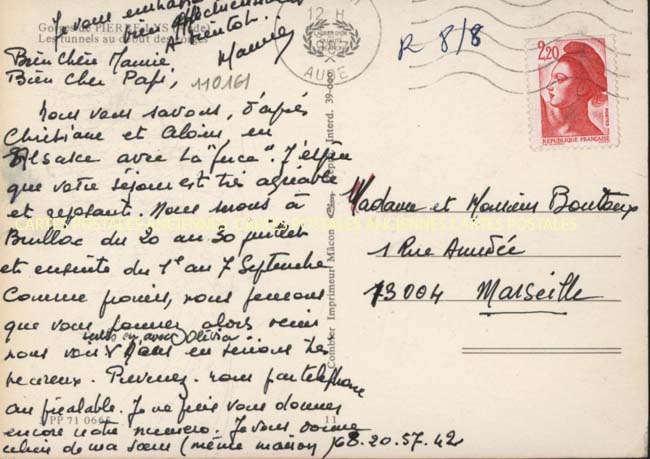 Je vous embrasse
bien affectueusement
A bientôt.
Mannie
Gorges de PIERRE-LYS (Aude)
Les tunnels au début des Gorges
Bien chère Mamie,
Bien cher Papi,
110161
Nous vous savons, d'après
Christiane et Aloïs en
Alsace avec la "puce". J'espère
que votre séjour est très agréable
et reposant. Nous serons à
du 20 au 30 juillet
et ensuite du 1er au 7 Septembre
Comme nous pensons
que vous pourrez alors venir
nous voir en avec Olivia
nous en serions très
heureux. Prévenez-nous par téléphone
au préalable. Je ne puis vous donner
encore notre numéro. Je vous donne
celui de ma sœur (même maison) 68.20.57.42
PP 71 0665
11
Combier Imprimeur Mâcon
Interd. 39-000
12 H
AUDE
R 8/8
2,20
REPUBLIQUE FRANÇAISE
POSTES
Madame et Monsieur Boutoux
1 Rue Amédée
13004 Marseille
CARTES POSTALES ANCIENNES CARTES POSTALES ANCIENNES CARTES POSTALES